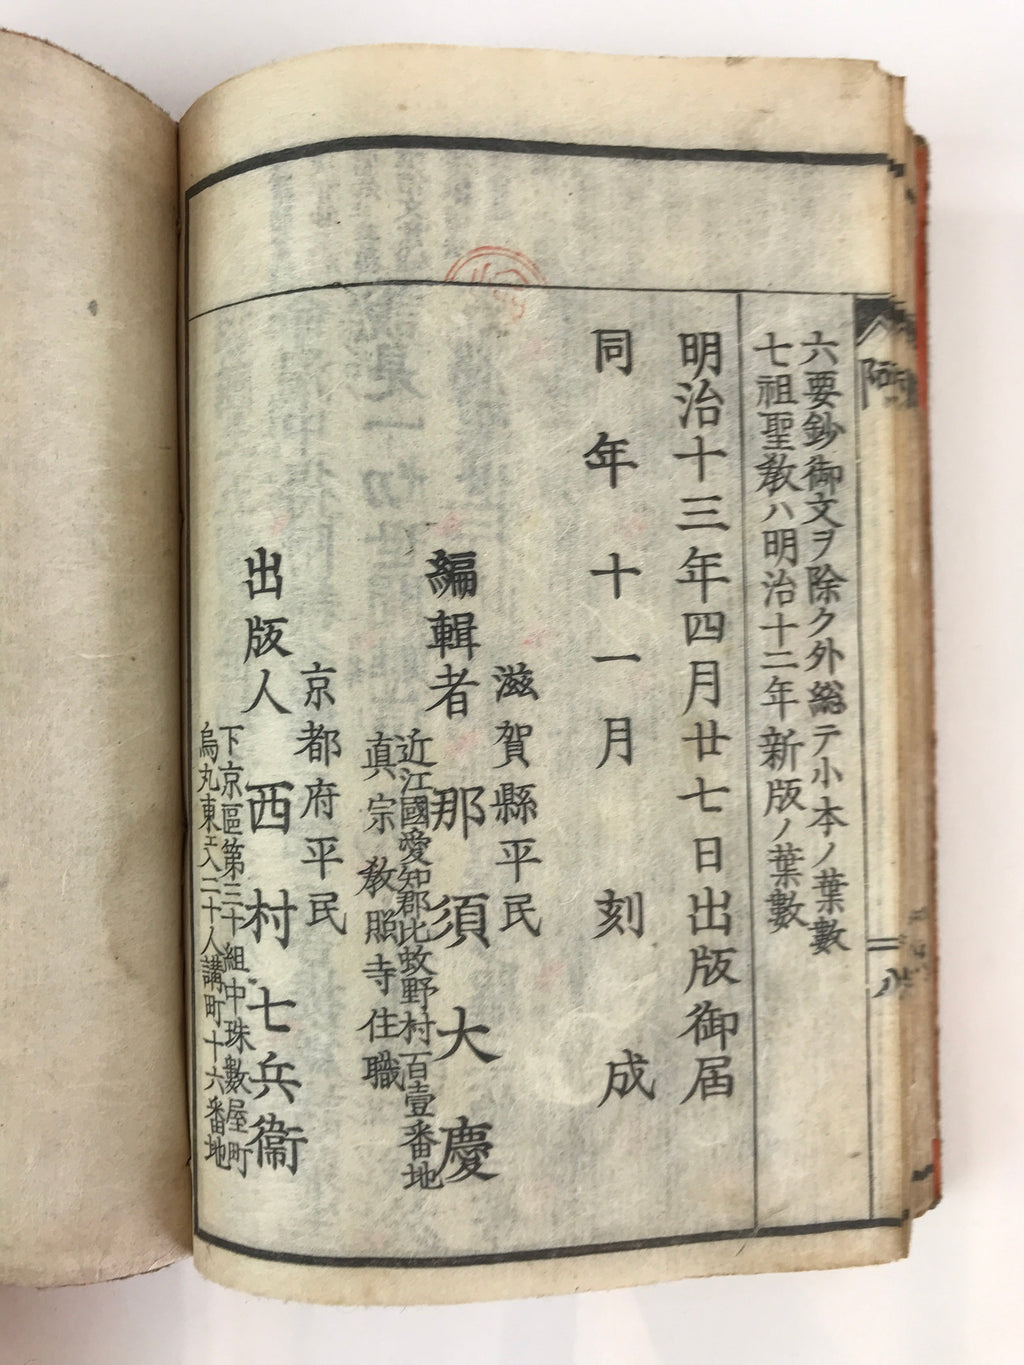 六要鈔御文ヲ除ク外総テ小本ノ葉數
七祖聖教ハ明治十二年新版ノ葉數
明治十三年四月廿七日出版御届
同年十一月刻成
滋賀縣平民
編輯者 那須大慶
近江國愛知郡比蚊野村百壹番地
真宗教照寺住職
京都府平民
出版人 西村七兵衞
下京區第三十組中珠數屋町
烏丸東エ入二十人講町十六番地